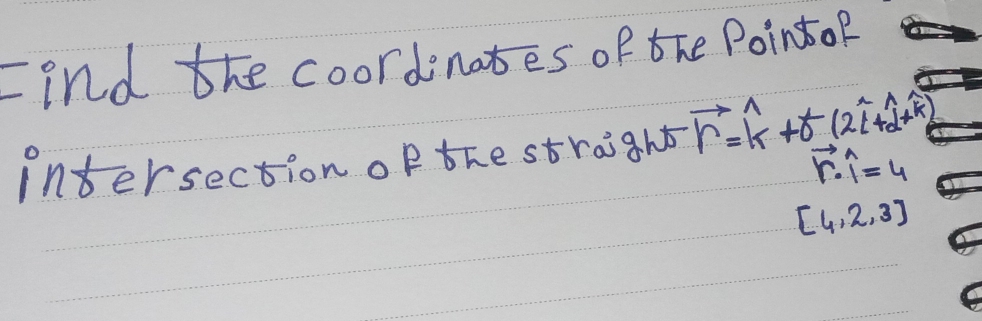 Find the coordinates of the Point of
intersection of the straight r⃗=k̂ +t(2î+ĵ+k̂)
r⃗.î=4
[4,2,3]